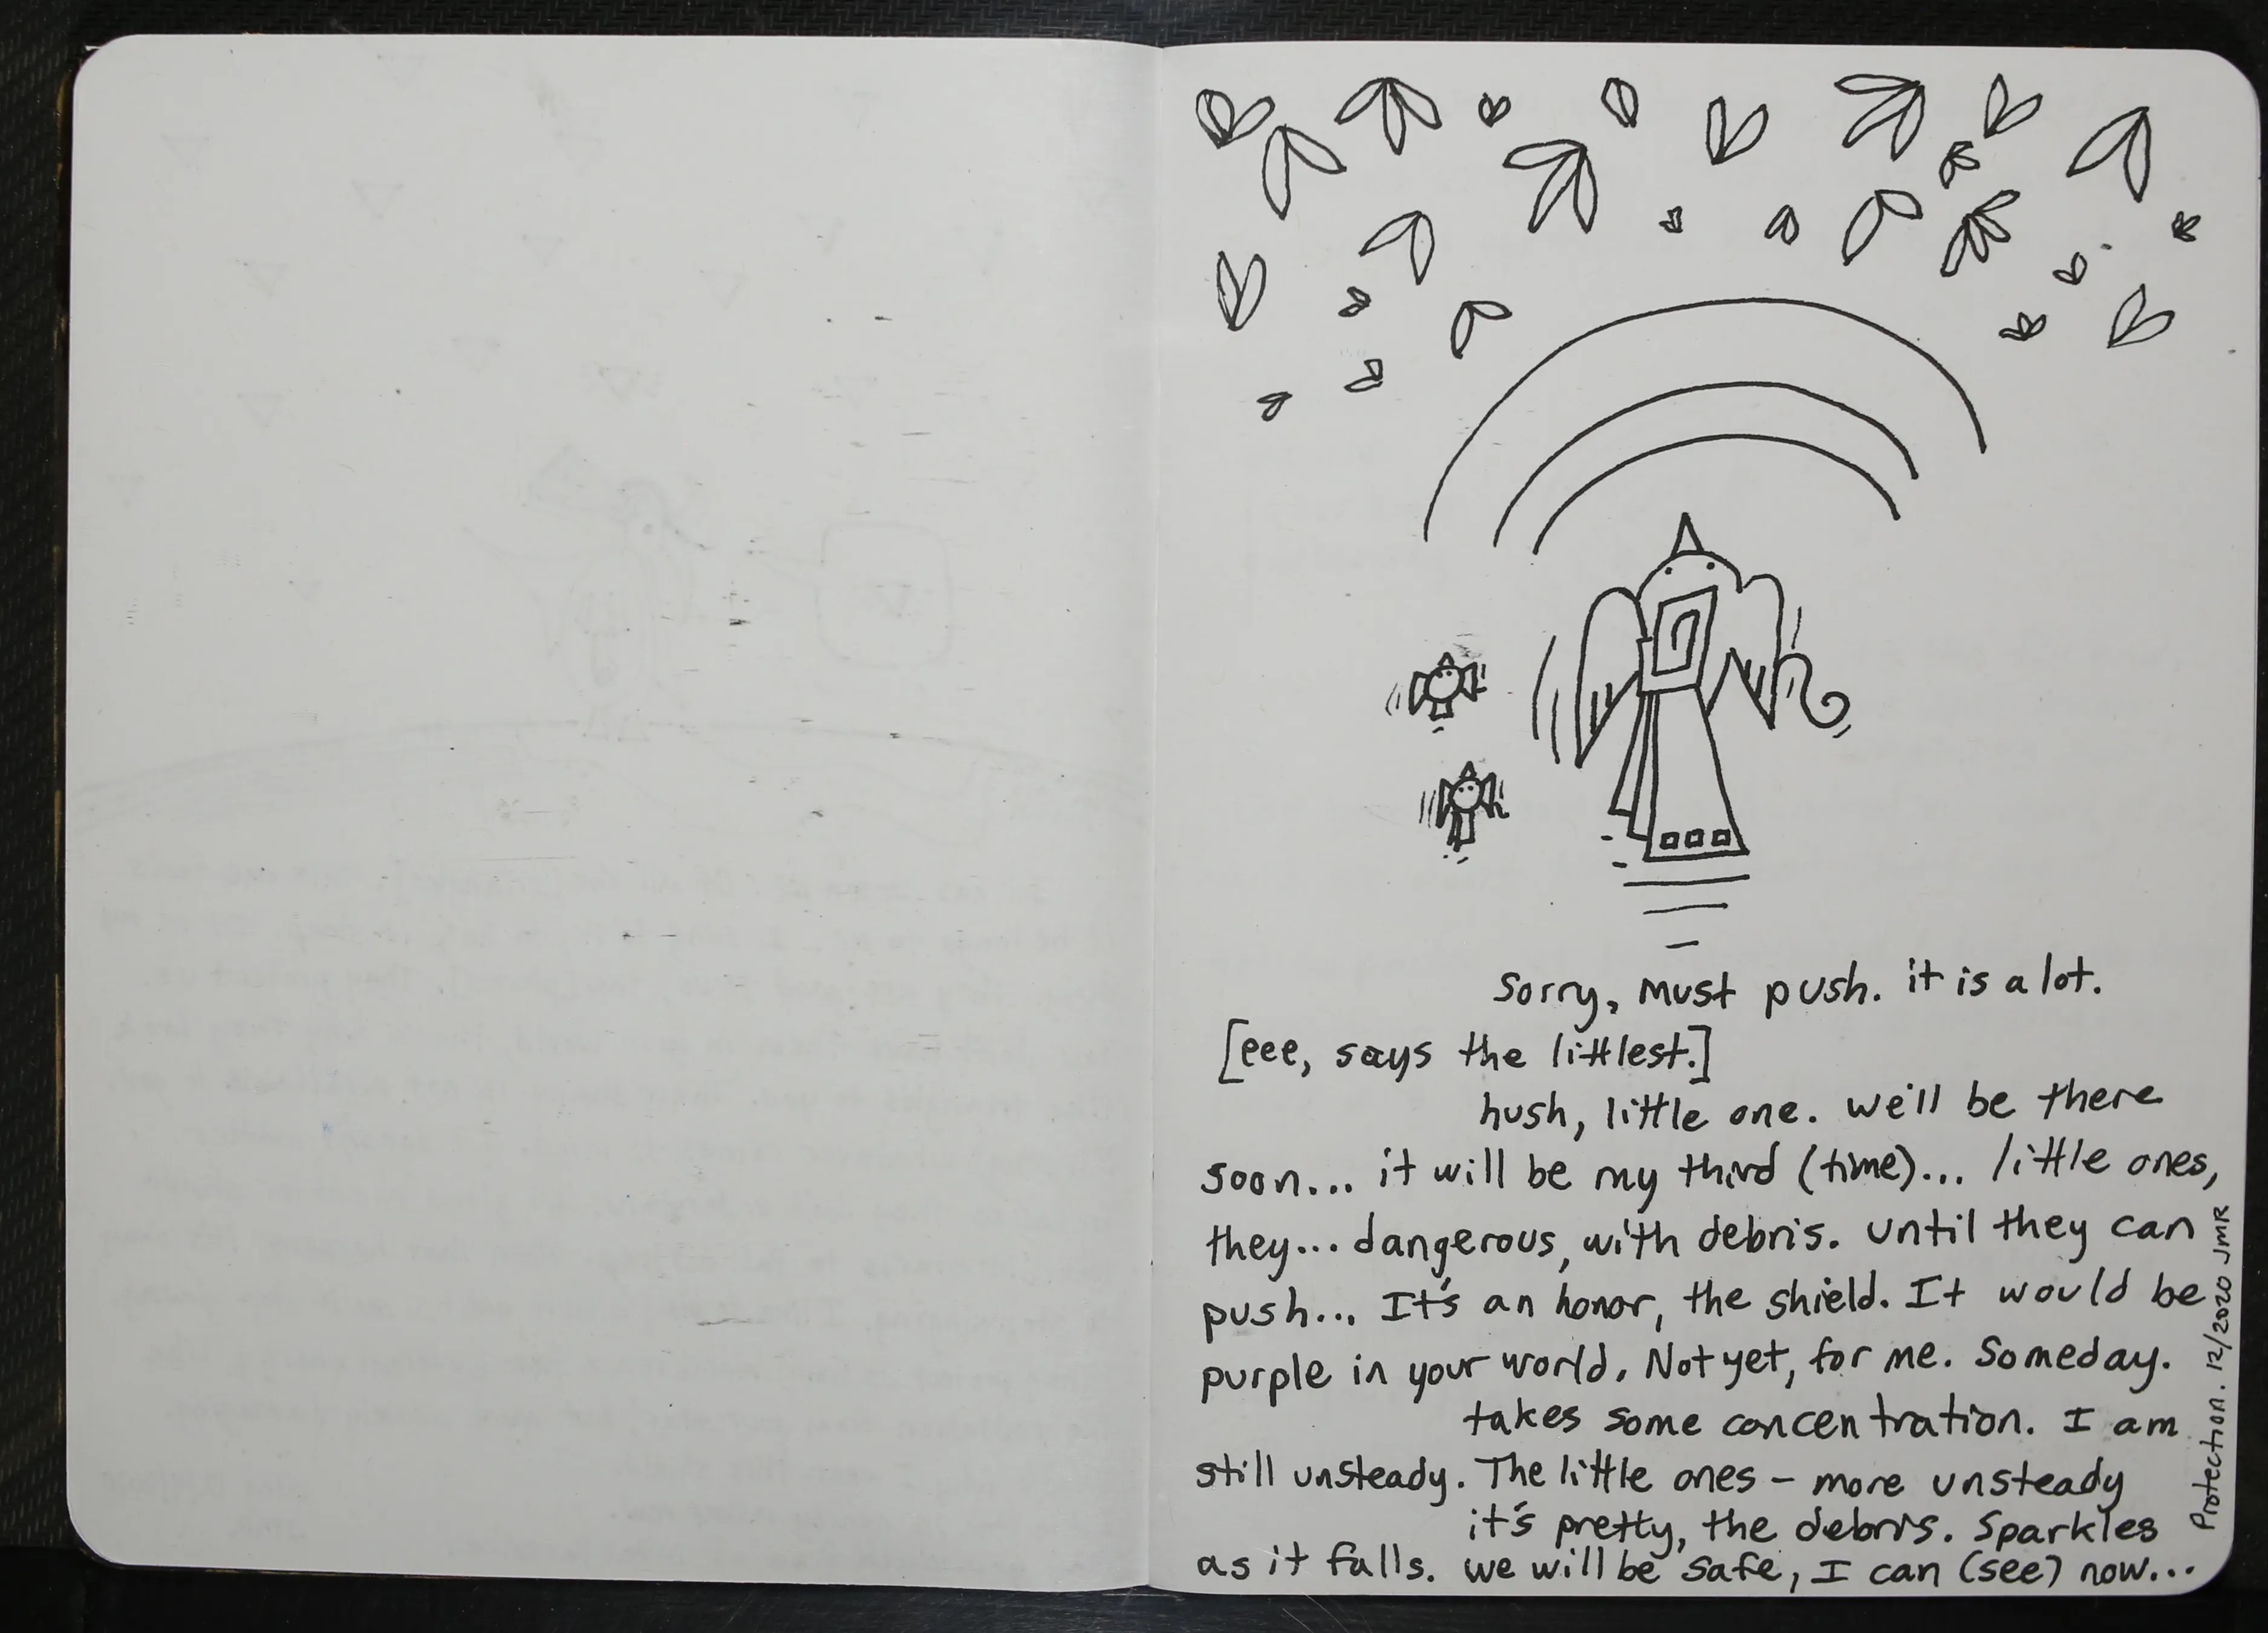 Sorry, must push. it is a lot.
[eee, says the littlest.]
hush, little one. we'll be there
soon... it will be my third (time)... little ones,
they... dangerous, with debris. until they can
push... It's an honor, the shield. It would be
purple in your world. Not yet, for me. Someday.
takes some concentration. I am
still unsteady. The little ones – more unsteady
it's pretty, the debris. Sparkles
as it falls. we will be safe, I can (see) now...
Protection. 12/2020 JMR